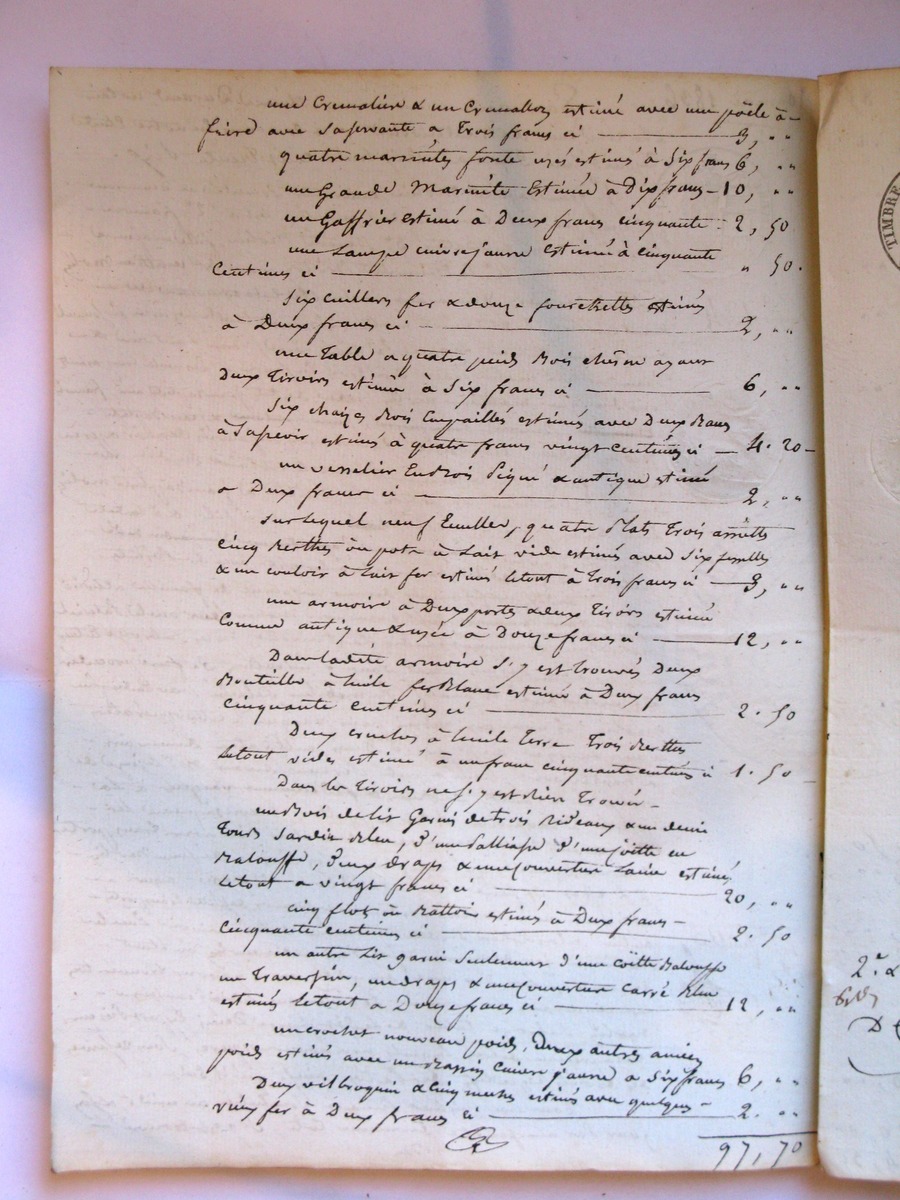 une Cremaliere & un Cremallon estimé avec une pöele à
frire avec sa servante a Trois francs ci 3, "
quatre marmites fonte usés estimés à Six francs 6, "
une Grande Marmite Estimée à Dix francs - 10, "
un Gaffrier estimé à Deux francs cinquante - 2, 50
une Lampe cuivre jaune estimée à cinquante
Centimes ci " 50.
Six cuillers fer & douze fourchettes estimés
à Deux francs ci 2, "
une Table a quatre pieds Bois chêne ayant
Deux Tiroirs estimée à Six francs ci 6, "
Six chaizes Bois Empaillés estimés avec Deux Bans
à Sasseoir estimés à quatre francs vingt Centimes ci 4. 20
un vesselier En Bois Peigné & antique estimé
a Deux francs ci 2, "
sur lequel neuf Ecuelles, quatre Plats Trois assiettes
Cinq Berthes ou pots à Lait vide estimés avec Six fesselles
& un couloir à lait fer estimés letout à trois francs ci 3, "
une armoire à Deux portes & deux Tiroirs estimée
Comme antique & usée à Douze francs ci 12, "
Dans ladite armoire S'y est trouvés Deux
Bouteille à huile fer Blanc estimés à Deux francs
cinquante centimes ci 2. 50
Deux cruches à huile Terre Trois Berthes
letout vides estimé à un franc cinquante centimes ci 1. 50
Dans les Tiroirs ne s'y est Rien Trouvé -
un Bois de lit Garni de trois Rideaux & un demi
Tours Sardis Bleu, D'une Palliasse D'une Coitte en
Balouffe, Deux draps & une couverture Laine estimé,
letout a vingt francs ci 20, "
cinq flots ou Battoirs estimés à Deux francs -
Cinquante centimes ci 2. 50
un autre Lit garni Seulement D'une Coitte Balouffe
un Traversin, un draps & une couverture Carré Bleu
estimés letout a Douze francs ci 12, "
un crochet nouveau poids, Deux autres ancien
poids estimés avec un Bassin Cuivre jaune a Six francs 6, "
Deux vilbroquin & Cinq meches estimés avec quelques -
vieux fer à Deux francs ci 2. "
97, 70
TIMBRE
2.e &